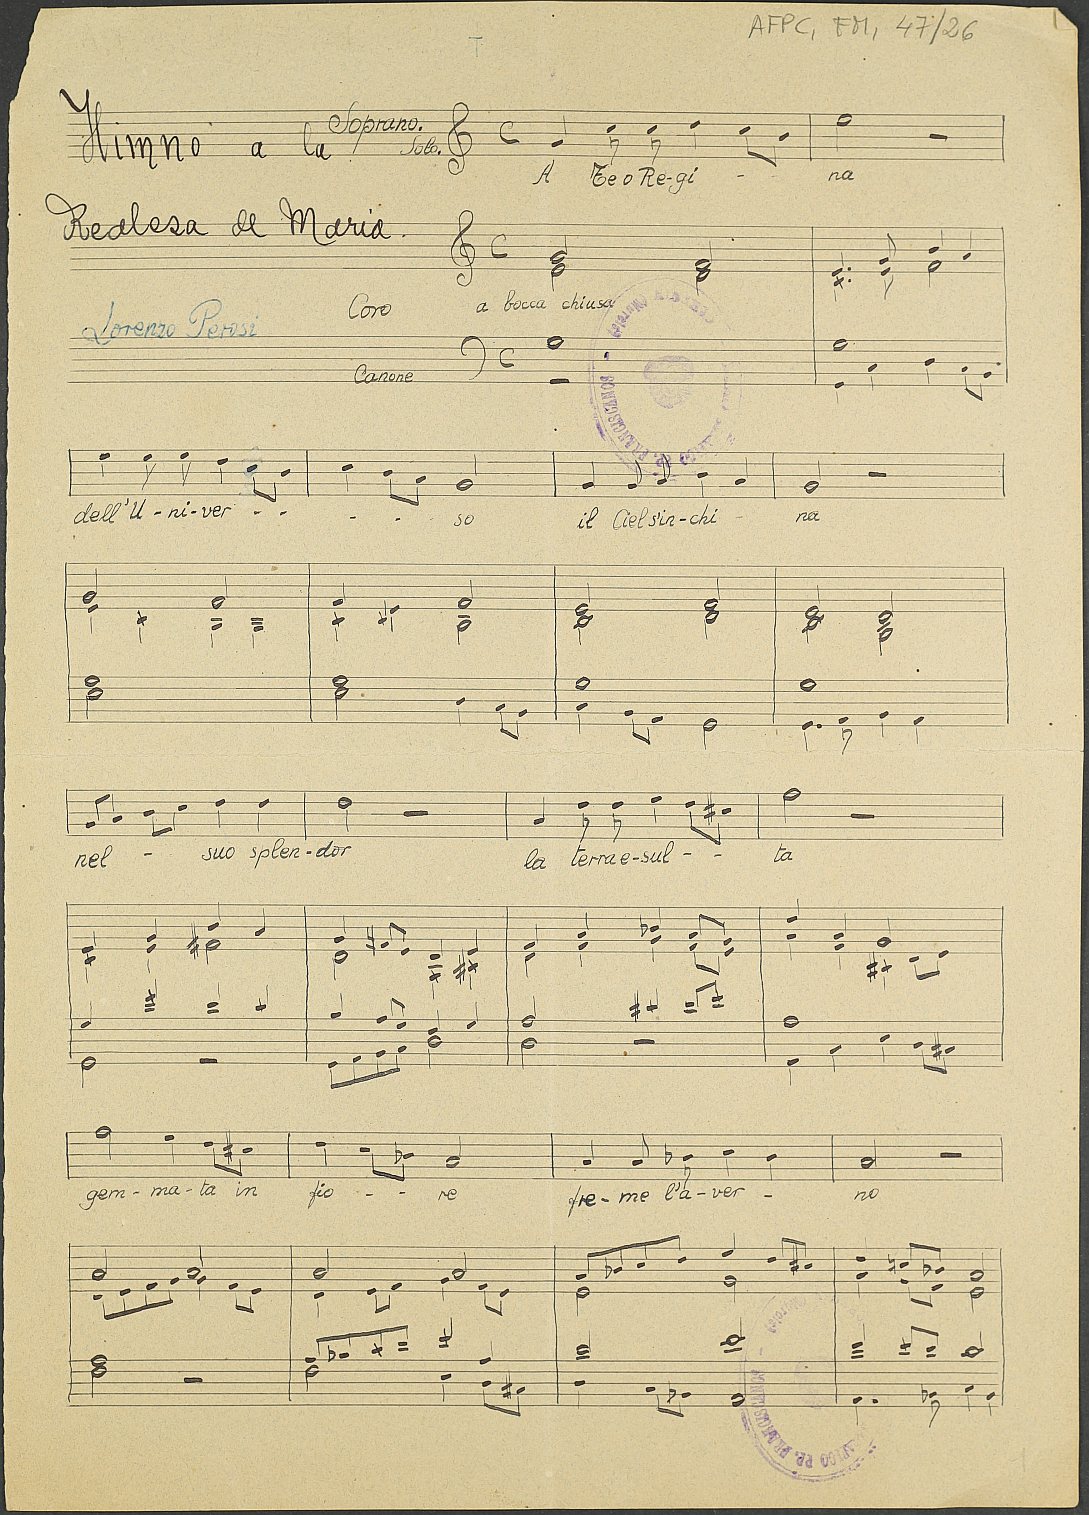 AFPC, FM, 47/26
Himno a la Soprano.
Solo.
A Te o Re-gi - - na
Realesa de Maria.
Coro a bocca chiusa
Lorenzo Perosi
Canone
dell'U-ni-ver - - - - so il Ciel s'in-chi - na
nel - suo splen-dor la terra e-sul - - ta
gem-ma-ta in fio - - re fre-me l'a-ver - no
PP. FRANCISCANOS
PP. FRANCISCANOS